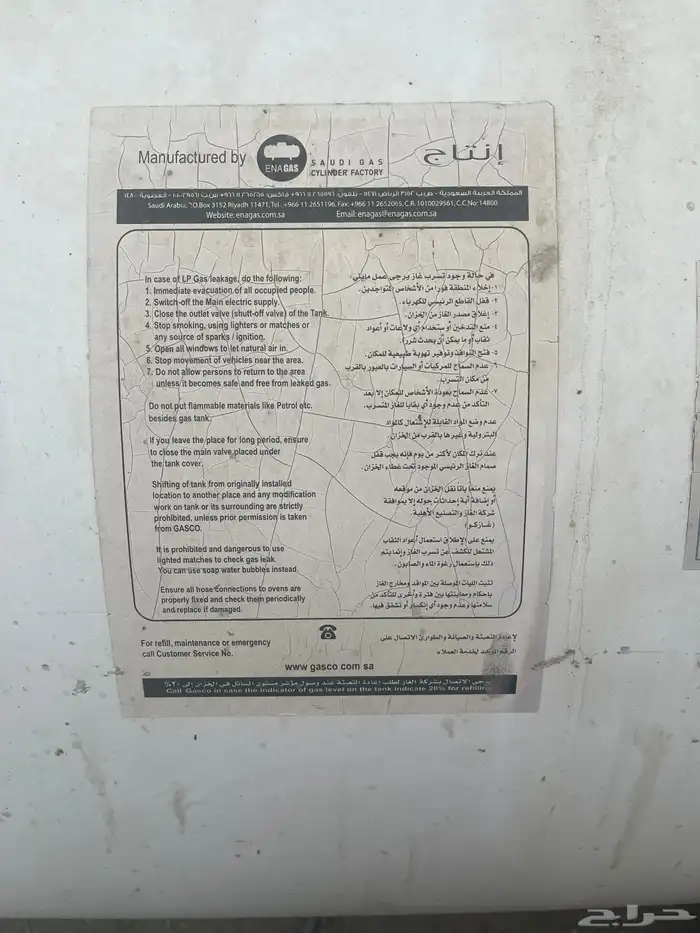 Manufactured by
ENAGAS
SAUDI GAS
CYLINDER FACTORY
إنتاج
المملكة العربية السعودية - ص.ب ٣١٥٢ الرياض ١١٤٧١
Saudi Arabia, P.O.Box 3152 Riyadh 11471, Tel.:+966 11 2651196, Fax:+966 11 2652065, C.R.1010029561, C.C.No: 14800
Website: enagas.com.sa Email: enagas@enagas.com.sa
In case of LP Gas leakage, do the following:
1. Immediate evacuation of all occupied people.
2. Switch-off the Main electric supply.
3. Close the outlet valve (shutt-off valve) of the Tank.
4. Stop smoking, using lighters or matches or
any source of sparks / ignition.
5. Open all windows to let natural air in.
6. Stop movement of vehicles near the area.
7. Do not allow persons to return to the area
unless it becomes safe and free from leaked gas.
Do not put flammable materials like Petrol etc.
besides gas tank.
If you leave the place for long period, ensure
to close the main valve placed under
the tank cover.
Shifting of tank from originally installed
location to another place and any modification
work on tank or its surrounding are strictly
prohibited, unless prior permission is taken
from GASCO.
It is prohibited and dangerous to use
lighted matches to check gas leak.
You can use soap water bubbles instead.
Ensure all hose connections to ovens are
properly fixed and check them periodically
and replace if damaged.
في حالة وجود تسرب غاز يرجى عمل مايلي:
١- إخلاء المنطقة فوراً من الأشخاص المتواجدين.
٢- قفل القاطع الرئيسي للكهرباء.
٣- إغلاق مصدر الغاز من الخزان.
٤- منع التدخين أو ستخدام أي ولاعات أو أعواد
ثقاب أو ما يمكن أن يحدث شرر).
٥- فتح النوافذ وتوفير تهوية طبيعية للمكان.
٦- عدم السماح للمركبات أو السيارات بالعبور بالقرب
من مكان التسرب.
٧- عدم السماح بعودة الأشخاص للمكان إلا بعد
التأكد من عدم وجود أي بقايا للغاز المتسرب.
عدم وضع المواد القابلة للإشتعال كالمواد
البترولية وغيرها بالقرب من الخزان.
عند ترك المكان لأكثر من يوم فإنه يجب قفل
صمام الغاز الرئيسي الموجود تحت غطاء الخزان.
يمنع منعاً باتاً نقل الخزان من موقعه
أو إضافة أية إحداثات حوله إلا بموافقة
شركة الغاز والتصنيع الأهلية.
(غازكو)
يمنع على الإطلاق استعمال أعواد الثقاب
المشتعل للكشف عن تسرب الغاز وإنما يتم
ذلك بإستعمال رغوة الماء والصابون.
تثبت الليات الموصلة بين المواقد ومخارج الغاز
بإحكام ومعاينتها بين فترة وأخرى للتأكد من
سلامتها وعدم وجود أي إنكسار أو تشقق فيها.
For refill, maintenance or emergency
call Customer Service No.
لإعادة التعبئة والصيانة والطوارئ الاتصال على
الرقم الموحد لخدمة العملاء
www gasco com sa
يرجى الاتصال بشركة الغاز لطلب إعادة التعبئة عند وصول مؤشر مستوى السائل في الخزان إلى ٢٠%
Call Gasco in case the indicator of gas level on the tank indicate 20% for refilling
حراج